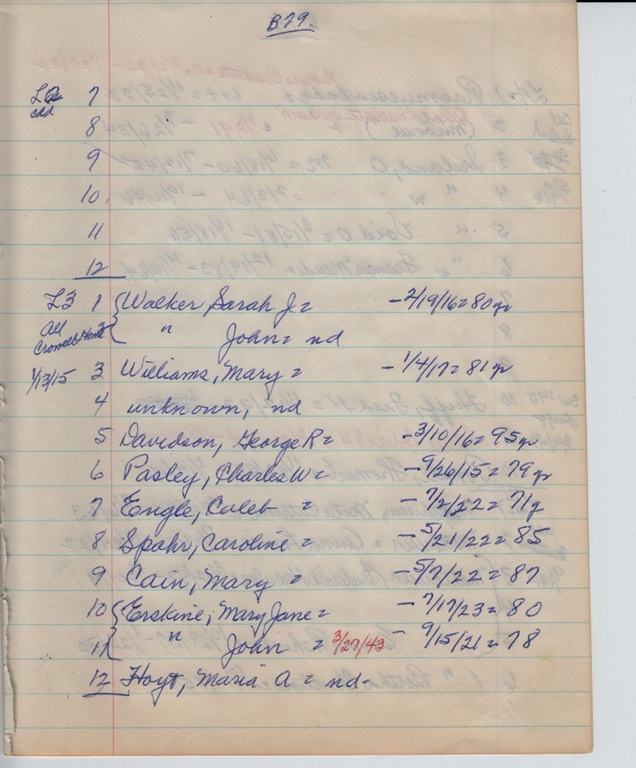 B79.
L2 7
odd 8
9
10
11
12
L3 1 { Walker Sarah J = - 2/19/16 = 80 yr
All " John = nd
Cromells Home
1/13/15 3 Williams, Mary = - 1/4/17 = 81 yr
4 unknown, nd
5 Davidson, George R = - 3/10/16 = 95 yr
6 Pasley, Charles W = - 9/26/15 = 79 yr
7 Engle, Caleb = - 7/2/22 = 71 y
8 Spahr, Caroline = - 5/21/22 = 85
9 Cain, Mary = - 5/7/22 = 87
10 { Erskine, Mary Jane = - 7/17/23 = 80
11 { " John = 3/27/43 - 9/15/21 = 78
12 Hoyt, Maria A = nd-